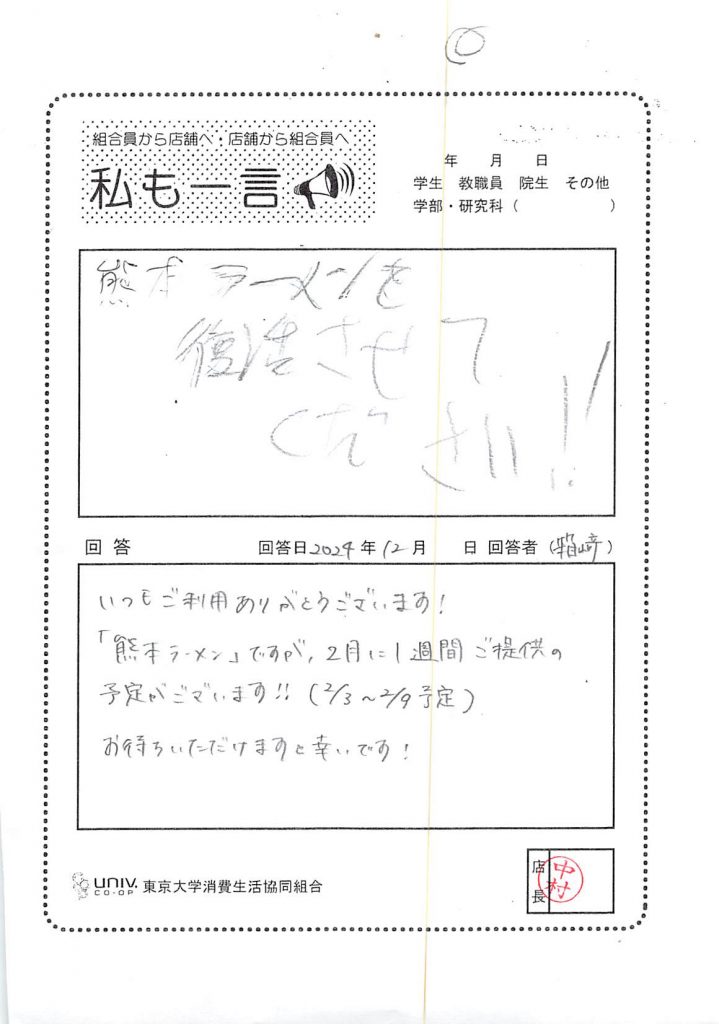 組合員から店舗へ・店舗から組合員へ
私も一言
年 月 日
学生 教職員 院生 その他
学部・研究科( )
熊本ラーメンを
復活させて
ください!!
回答 回答日2024年12月 日 回答者(箱崎)
いつもご利用ありがとうございます!
「熊本ラーメン」ですが、2月に1週間ご提供の
予定がございます!!(2/3~2/9予定)
お待ちいただけますと幸いです!
UNIV. CO-OP 東京大学消費生活協同組合
店長
中村